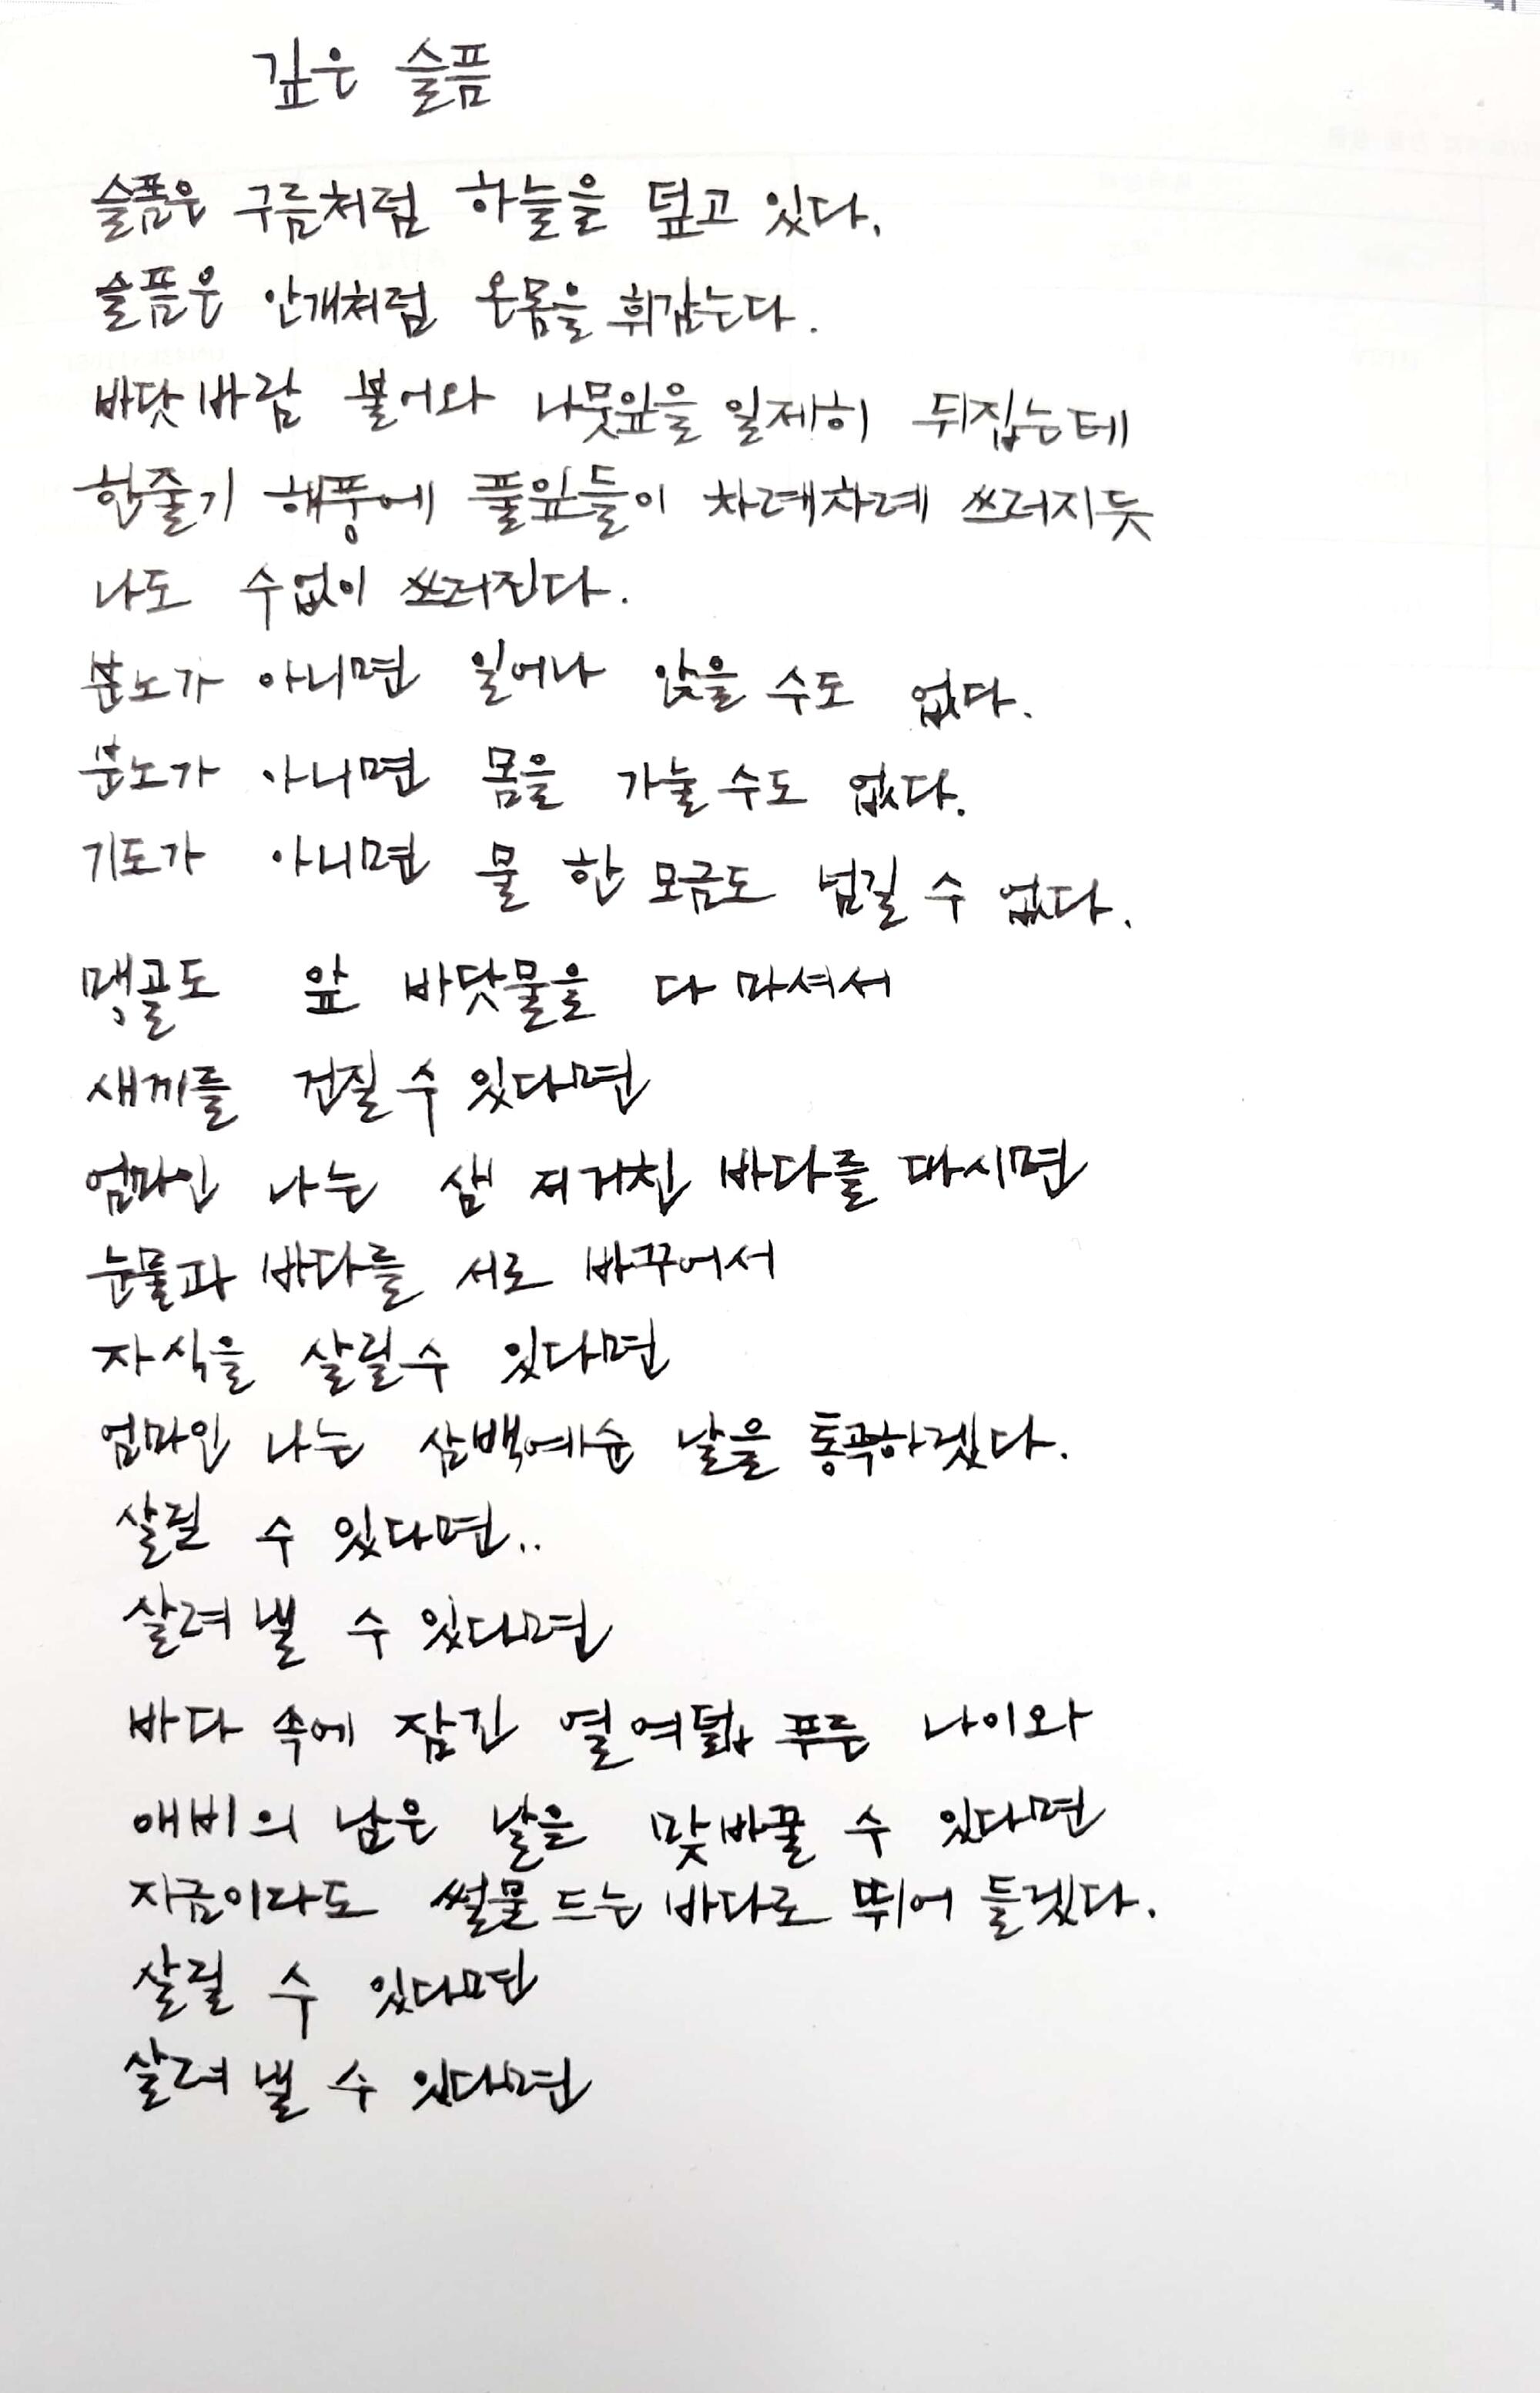 깊은 슬픔
슬픔은 구름처럼 하늘을 덮고 있다.
슬픔은 안개처럼 온몸을 휘감는다.
바닷바람 불어와 나뭇잎을 일제히 뒤집는데
한줄기 해풍에 풀잎들이 차례차례 쓰러지듯
나도 수없이 쓰러진다.
분노가 아니면 일어나 앉을 수도 없다.
분노가 아니면 몸을 가눌 수도 없다.
기도가 아니면 물 한 모금도 넘길 수 없다.
맹골도 앞 바닷물을 다 마셔서
새끼를 건질 수 있다면
엄마인 나는 저 거친 바다를 마시면
눈물과 바다를 서로 바꾸어서
자식을 살릴수 있다면
엄마인 나는 삼백예순 날을 통곡하겠다.
살릴 수 있다면..
살려 낼 수 있다면
바다 속에 잠긴 열여덟 푸른 나이와
애비의 남은 날을 맞바꿀 수 있다면
지금이라도 썰물 드는 바다로 뛰어 들겠다.
살릴 수 있다면
살려 낼 수 있다면